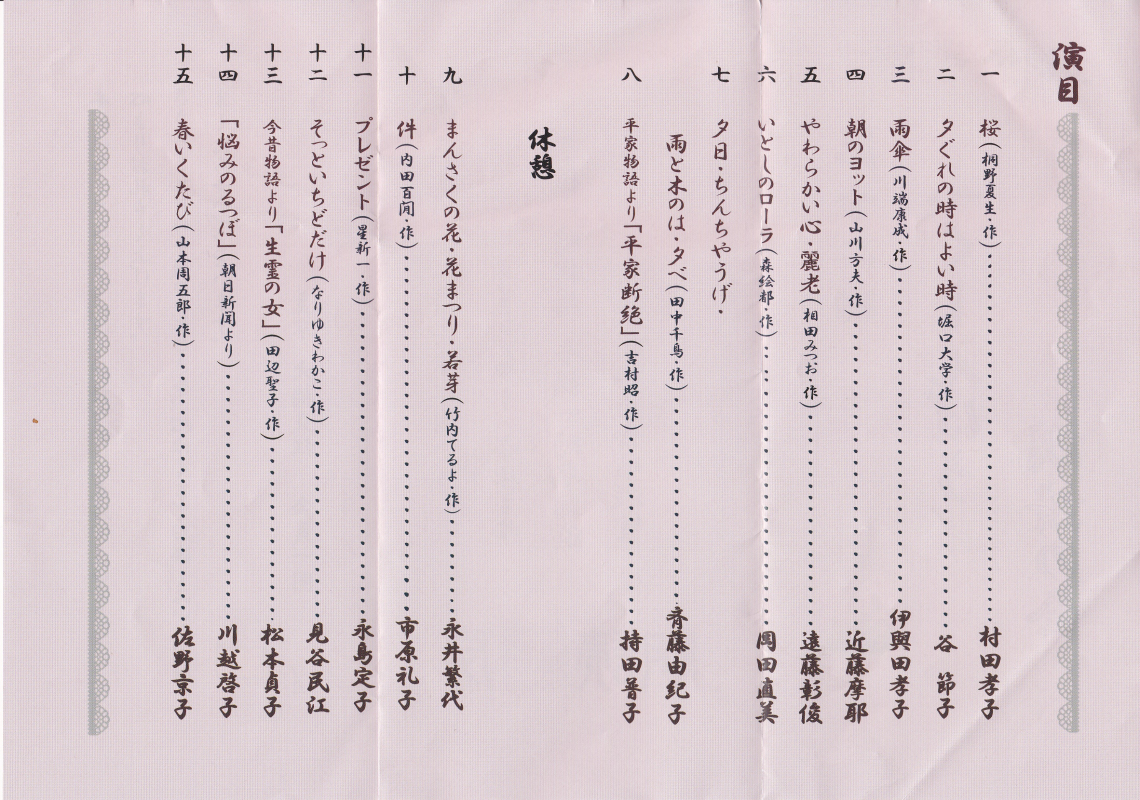 演目
一 桜(桐野夏生・作)・・・・・・・・・・・・・・・・・・・・・・・・村田孝子
二 夕ぐれの時はよい時(堀口大学・作)・・・・・・・・・・・・・・・谷 節子
三 雨傘(川端康成・作)・・・・・・・・・・・・・・・・・・・・・・・伊與田孝子
四 朝のヨット(山川方夫・作)・・・・・・・・・・・・・・・・・・・・近藤摩耶
五 やわらかい心・麗老(相田みつお・作)・・・・・・・・・・・・・・遠藤彰俊
六 いとしのローラ(森絵都・作)・・・・・・・・・・・・・・・・・・・岡田直美
七 夕日・ちんちやうげ・
雨と木のは・夕べ(田中千鳥・作)・・・・・・・・・・・・・・・斉藤由紀子
八 平家物語より「平家断絶」(吉村昭・作)・・・・・・・・・・・・・・持田普子
休憩
九 まんさくの花・花まつり・若芽(竹内てるよ・作)・・・・・・・永井繁代
十 件(内田百閒・作)・・・・・・・・・・・・・・・・・・・・・・・・市原礼子
十一 プレゼント(星新一・作)・・・・・・・・・・・・・・・・・・・・・永島定子
十二 そっといちどだけ(なりゆきわかこ・作)・・・・・・・・・・・・・見谷民江
十三 今昔物語より「生霊の女」(田辺聖子・作)・・・・・・・・・・・・松本貞子
十四 「悩みのるつぼ」(朝日新聞より)・・・・・・・・・・・・・・・・・川越啓子
十五 春いくたび(山本周五郎・作)・・・・・・・・・・・・・・・・・・佐野京子